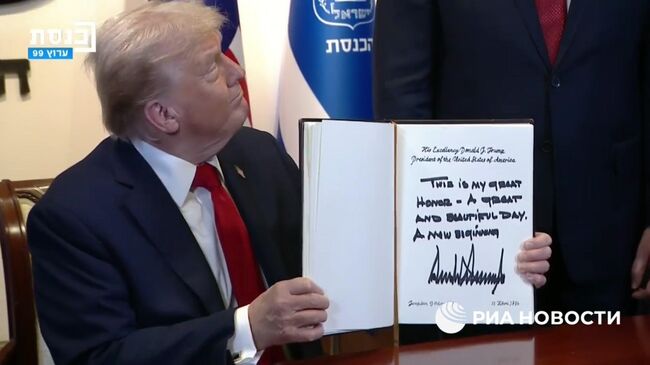 כנסת
ערוץ 99
ישראל
הכנסת
His Excellency Donald J. Trump
President of the United States of America
THIS IS MY GREAT
HONOR - A GREAT
AND BEAUTIFUL DAY.
A NEW BEGINNING
РИА НОВОСТИ